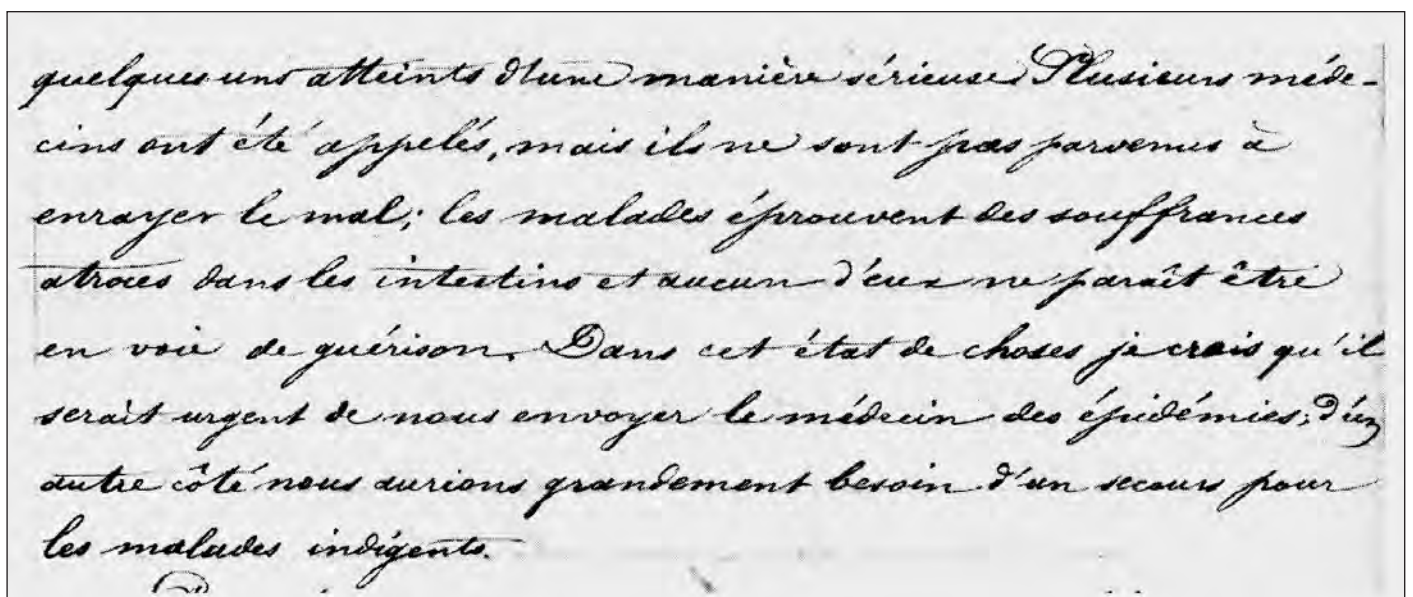 quelques uns atteints d'une manière sérieuse. Plusieurs méde-
cins ont été appelés, mais ils ne sont pas parvenus à
enrayer le mal; les malades éprouvent des souffrances
atroces dans les intestins et aucun d'eux ne paraît être
en voie de guérison. Dans cet état de choses je crois qu'il
serait urgent de nous envoyer le médecin des épidémies; d'un
autre côté nous aurions grandement besoin d'un secours pour
les malades indigents.